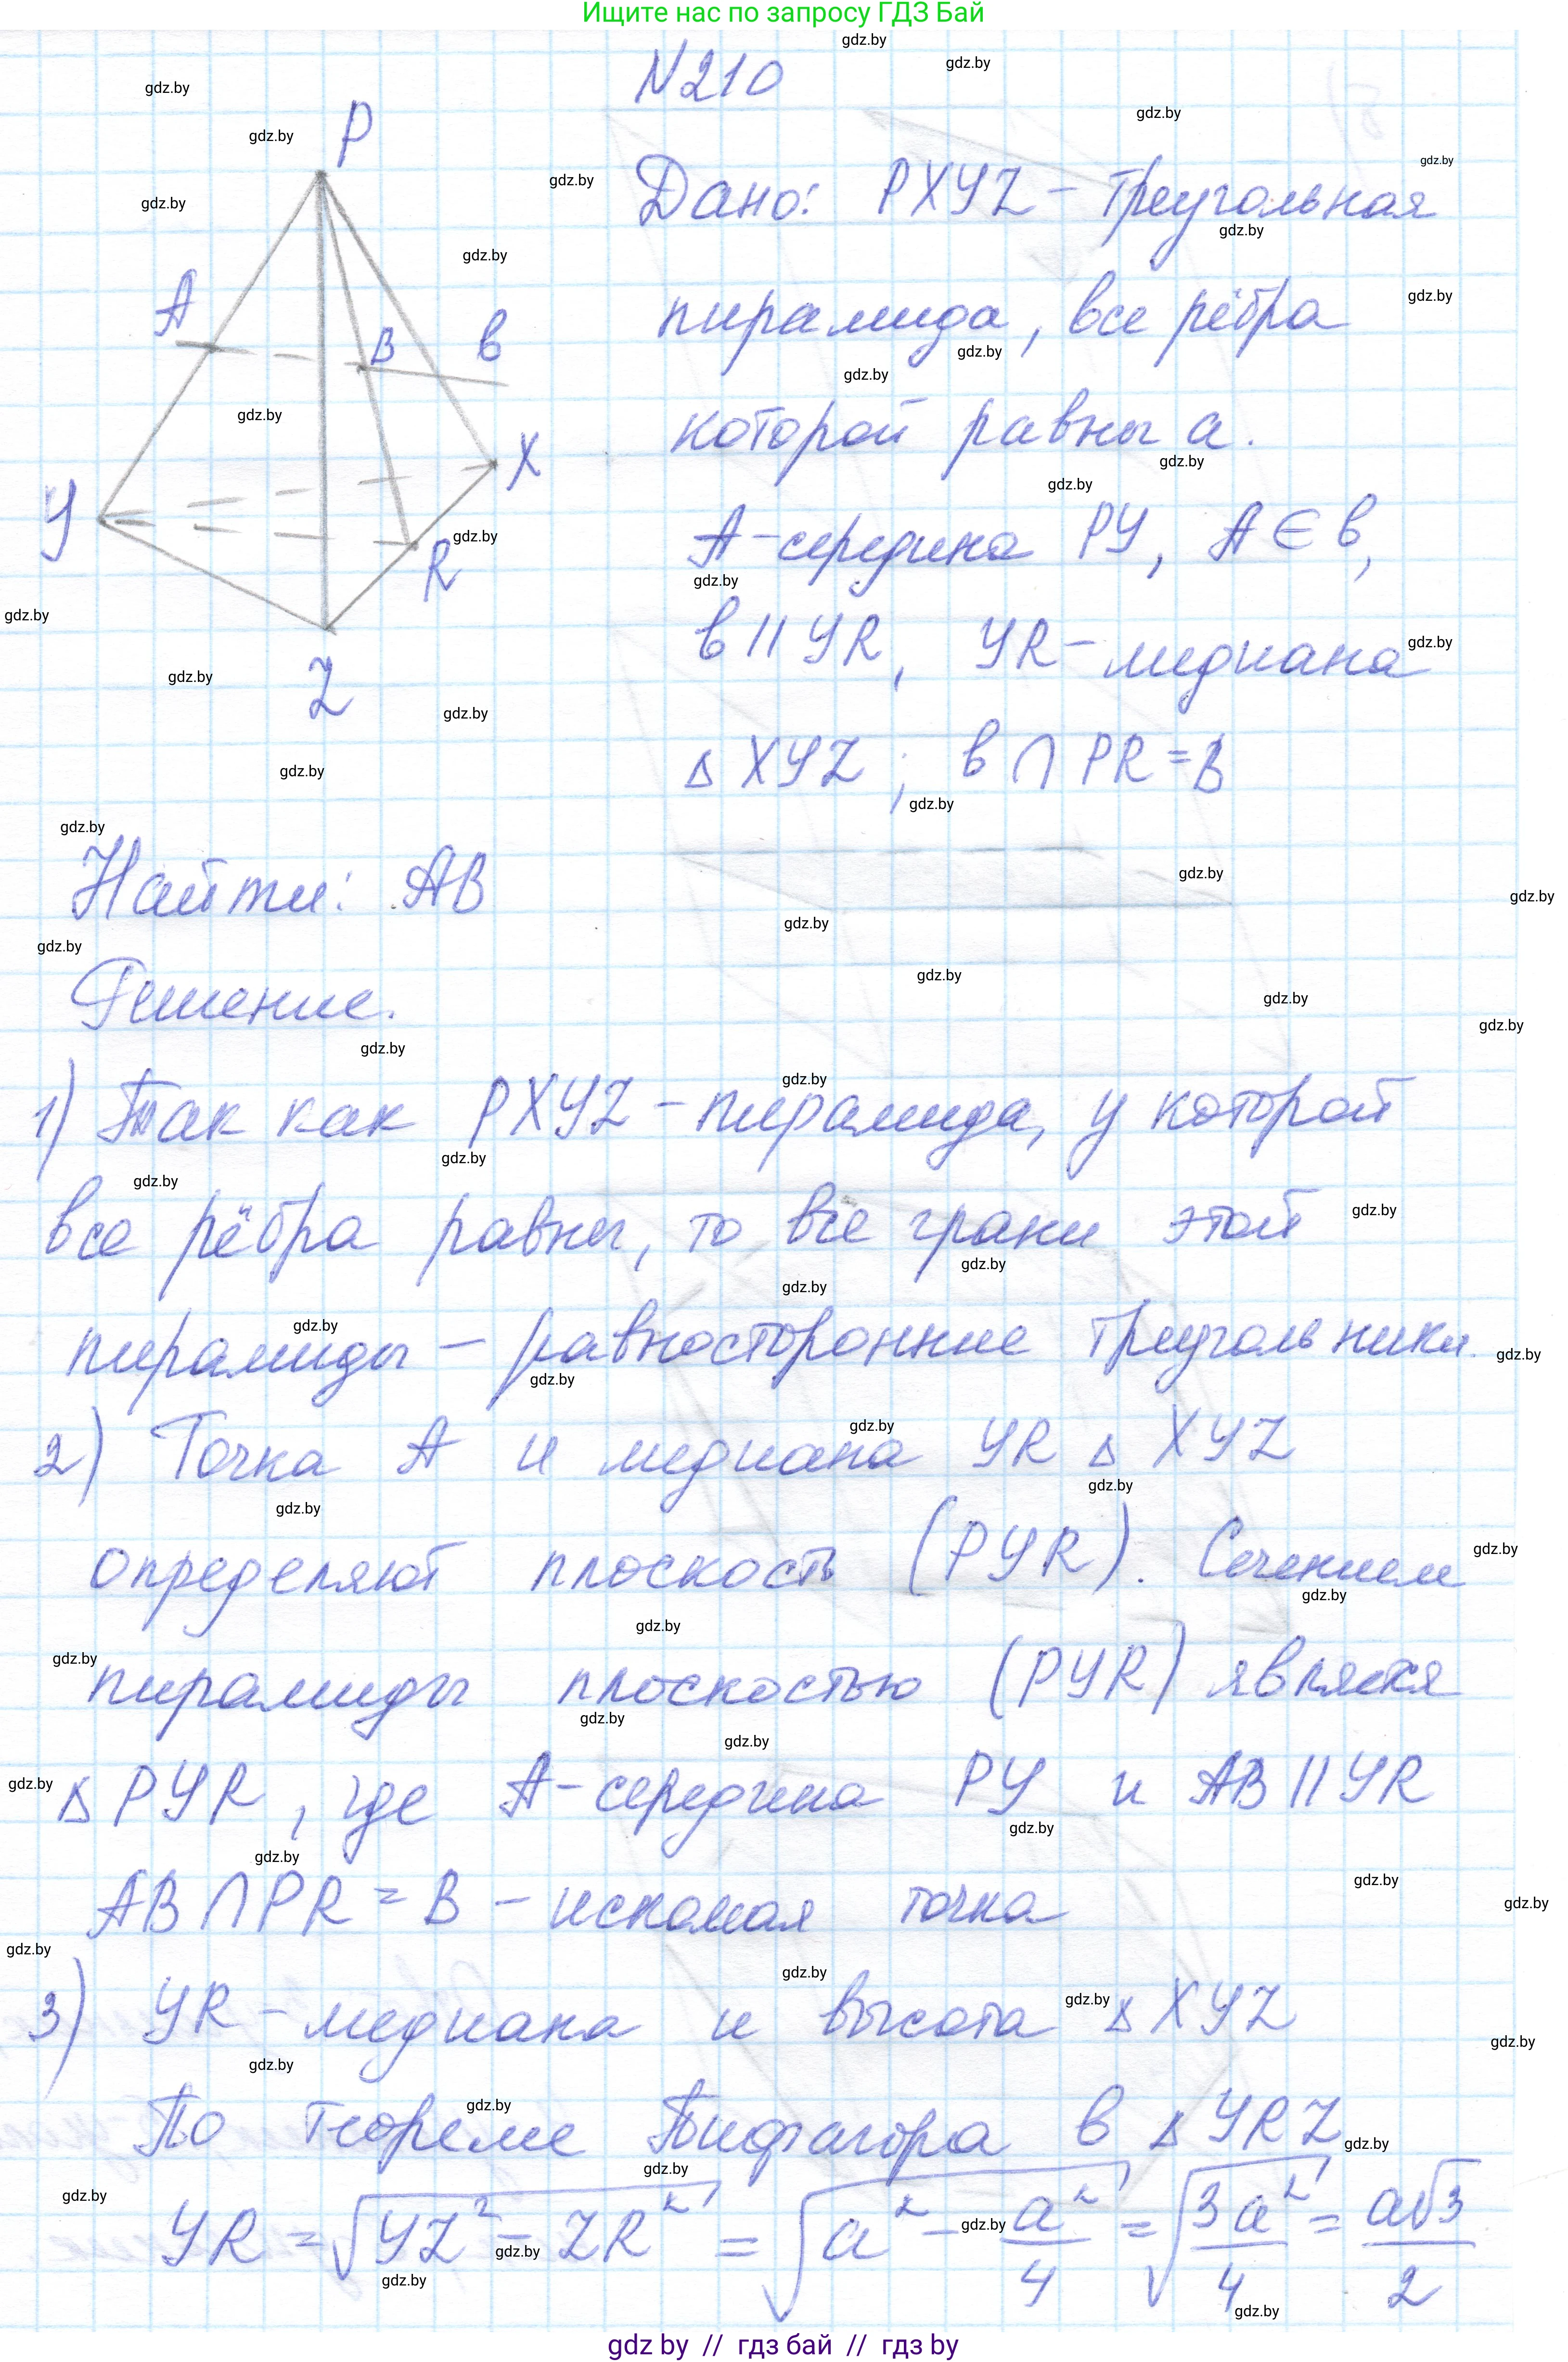 Ищите нас по запросу ГДЗ Бай
N210
Дано: PXYZ – треугольная
пирамида, все рёбра
которой равны a.
A – середина PY, A ∈ b,
b || YR, YR – медиана
△ XYZ; b ∩ PR = B
P
A
B
b
X
Y
R
Z
Найти: AB
Решение.
1) Так как PXYZ – пирамида, у которой
все рёбра равны, то все грани этой
пирамиды – равносторонние треугольники.
2) Точка A и медиана YR △ XYZ
определяют плоскость (PYR). Сечением
пирамиды плоскостью (PYR) является
△ PYR, где A – середина PY и AB || YR
AB ∩ PR = B – искомая точка
3) YR – медиана и высота △ XYZ
По теореме Пифагора в △ YRZ
YR = √(YZ² – ZR²) = √(a² – a²/4) = √(3a²/4) = a√3/2
gdz by // гдз бай // гдз by
gdz.by